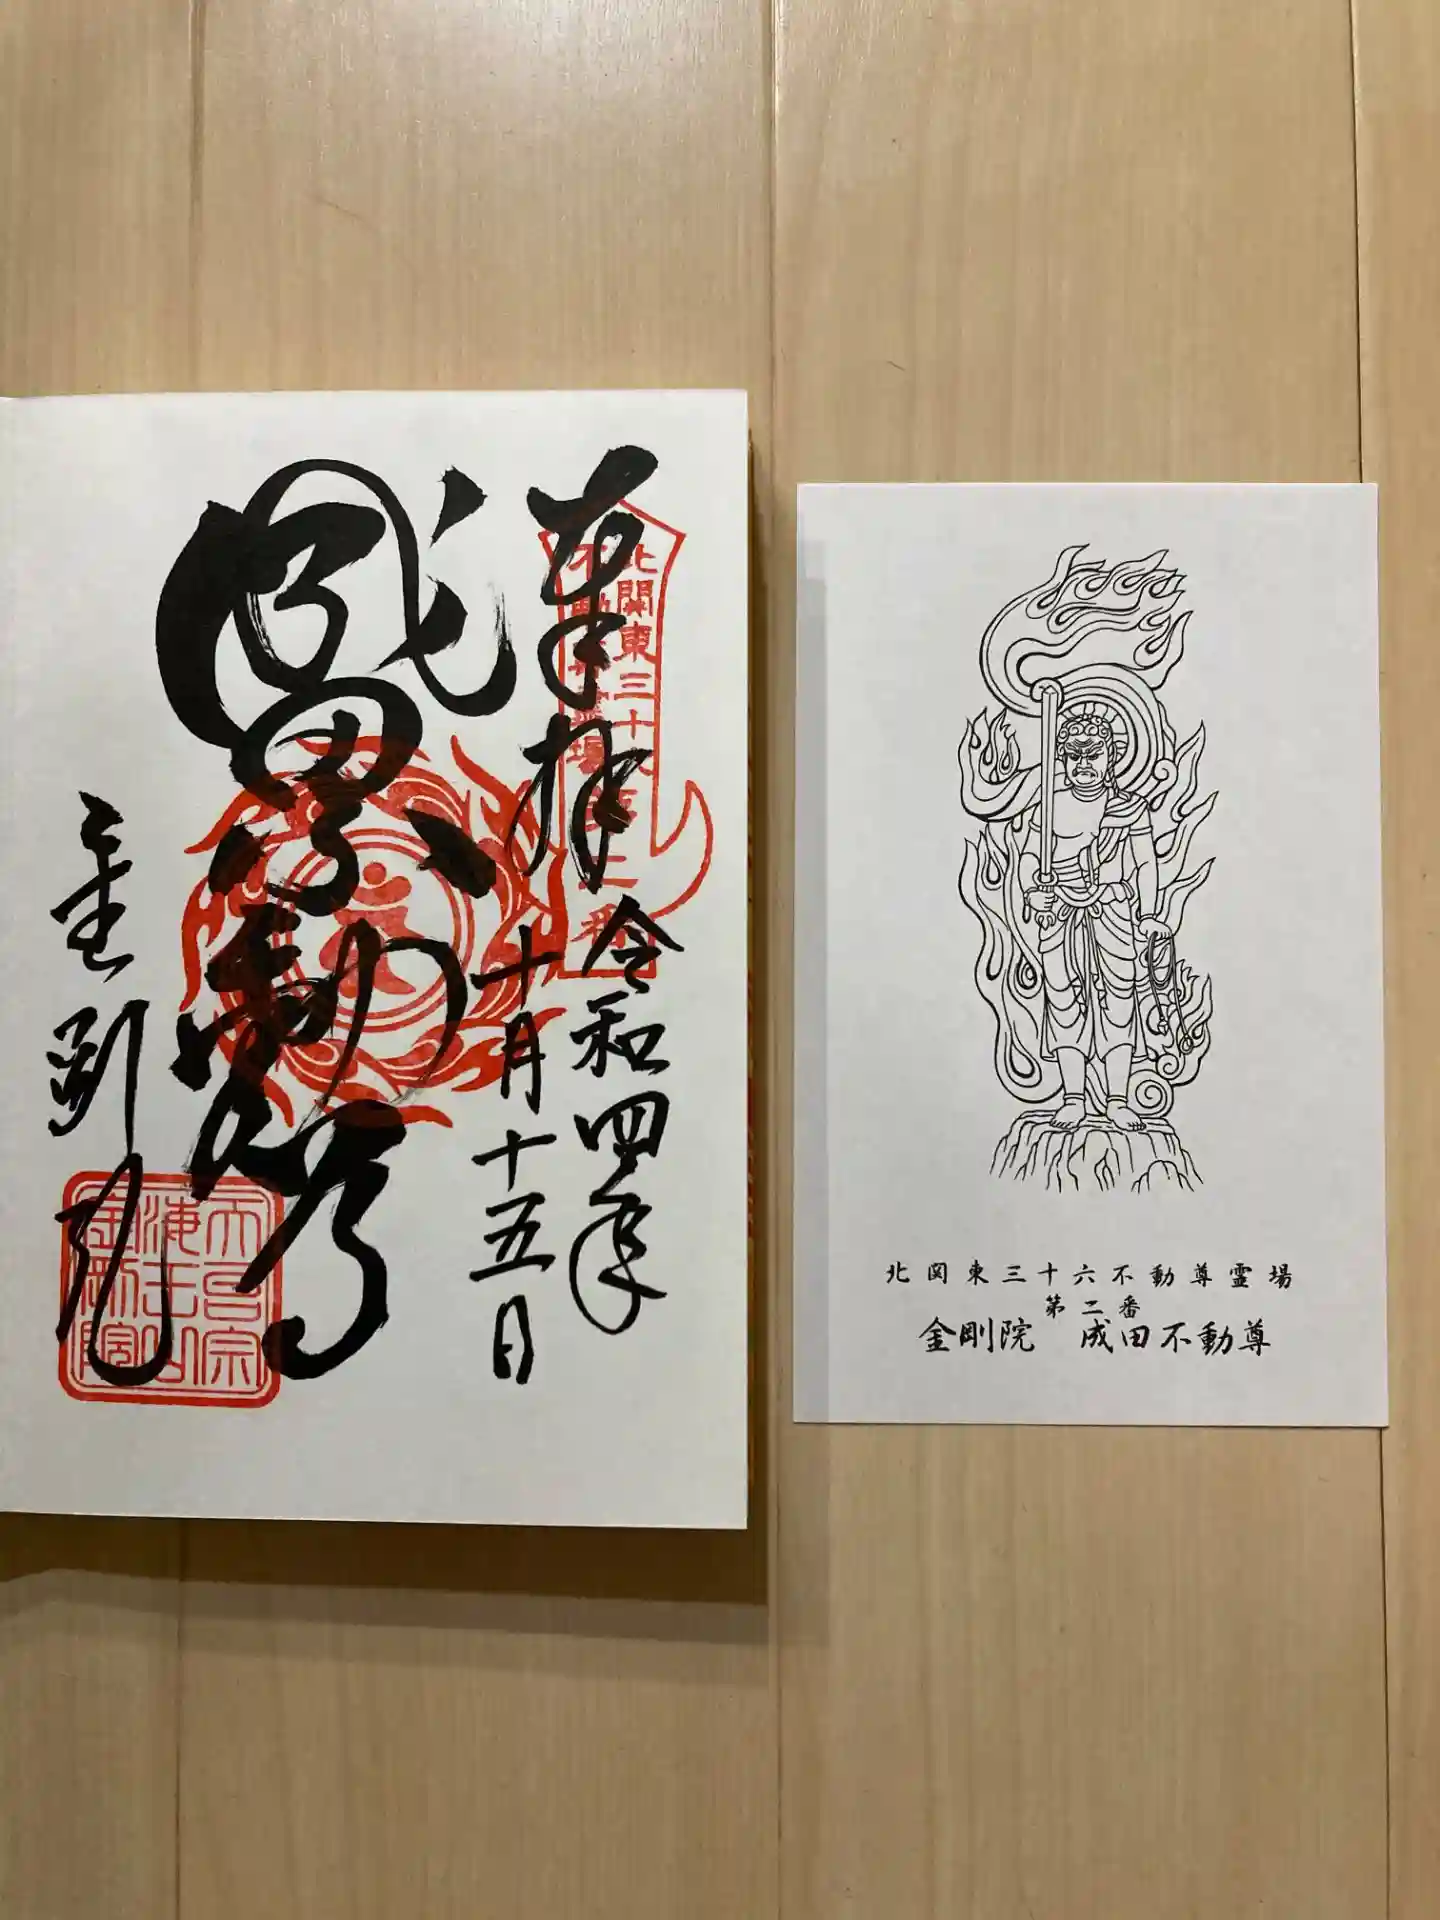 奉拝
北関東三十六
不動尊霊場
第二番
令和四年
十月十五日
成田不動尊
金剛院
天台宗
海王山
金剛院
北関東三十六不動尊霊場
第二番
金剛院 成田不動尊